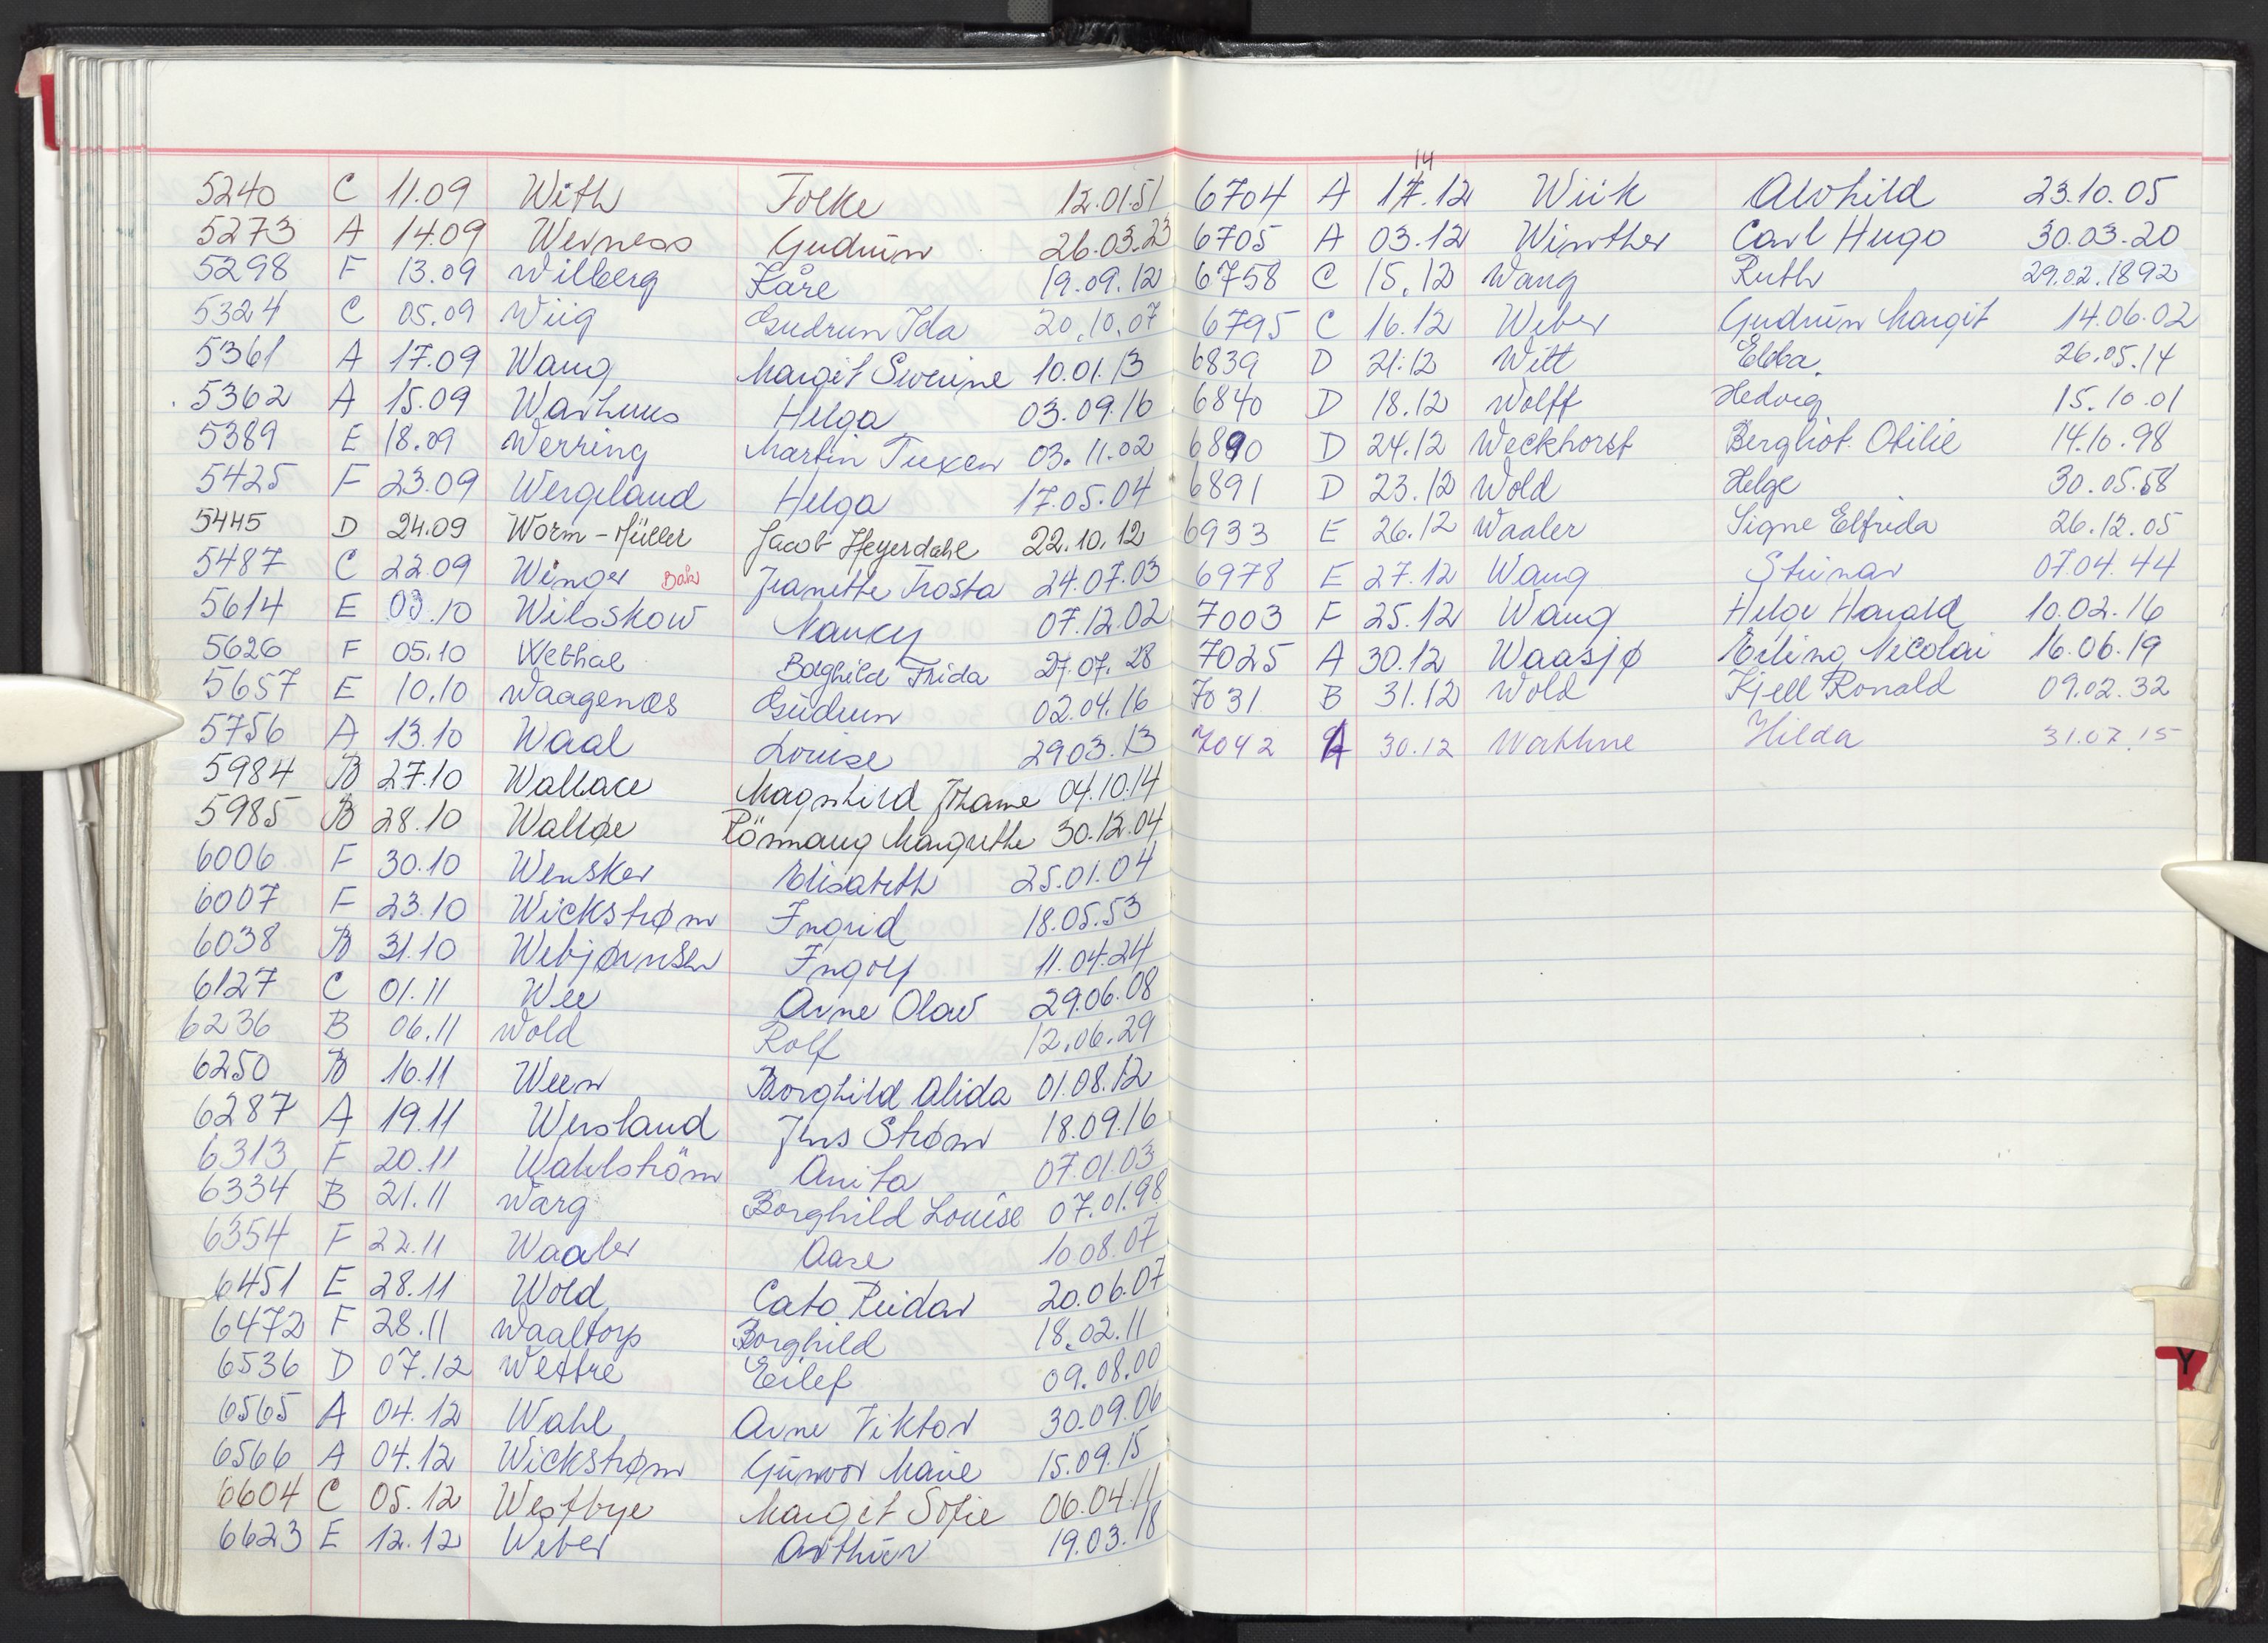 5240 C 11.09 With Folke 12.01.51
5273 A 14.09 Werness Gudrun 26.03.23
5298 F 13.09 Wilberg Kåre 19.09.12
5324 C 05.09 Wiig Gudrun Ida 20.10.07
5361 A 17.09 Wang Margit Sverine 10.01.13
5362 A 15.09 Warhuus Helga 03.09.16
5389 E 18.09 Werring Martin Tuxen 03.11.02
5425 F 23.09 Wergeland Helga 17.05.04
5445 D 24.09 Worm-Müller Jacob Heyerdahl 22.10.12
5487 C 22.09 Winger Jeanette Trosta 24.07.03
5614 E 03.10 Wilsskow Nancy 07.12.02
5626 F 05.10 Wethal Borghild Frida 27.07.28
5657 E 10.10 Waagenes Gudrun 02.04.16
5756 A 13.10 Waal Louise 29.03.13
5984 B 27.10 Wallace Magnhild Johanne 04.10.14
5985 B 28.10 Walløe Rönnaug Margrethe 30.12.04
6006 F 30.10 Wensker Elisabeth 25.01.04
6007 F 23.10 Wickstrøm Ingrid 18.05.53
6038 B 31.10 Webjørnsen Ingolf 11.04.24
6127 C 01.11 Wee Arne Olav 29.06.08
6236 B 06.11 Wold Rolf 12.06.29
6250 B 16.11 Ween Borghild Alida 01.08.12
6287 A 19.11 Wersland Jens Strøm 18.09.16
6313 F 20.11 Wahlström Anita 07.01.03
6334 B 21.11 Warg Borghild Louise 07.01.98
6354 F 22.11 Waaler Aase 10.08.07
6451 E 28.11 Wold Cato Reidar 20.06.07
6472 F 28.11 Waaltorp Borghild 18.02.11
6536 D 07.12 Wettre Eilef 09.08.00
6565 A 04.12 Wahl Arne Viktor 30.09.06
6566 A 04.12 Wickstrøm Gunvor Marie 15.09.15
6604 C 05.12 Westbye Margit Sofie 06.04.11
6623 E 12.12 Weber Arthur 19.03.18
14
6704 A 17.12 Wiik Alvhild 23.10.05
6705 A 03.12 Winther Carl Hugo 30.03.20
6758 C 15.12 Wang Ruth 29.02.1892
6795 C 16.12 Weber Gudrun Margit 14.06.02
6839 D 21.12 Witt Ebba 26.05.14
6840 D 18.12 Wolff Hedvig 15.10.01
6890 D 24.12 Weckhorst Bergliot Otilie 14.10.98
6891 D 23.12 Wold Helge 30.05.58
6933 E 26.12 Waaler Signe Elfrida 26.12.05
6978 E 27.12 Wang Steinar 07.04.44
7003 F 25.12 Wang Helge Harald 10.02.16
7025 A 30.12 Waasjø Erling Nicolai 16.06.19
7031 B 31.12 Wold Kjell Ronald 09.02.32
7042 A 30.12 Wathne Hilda 31.07.15
Y